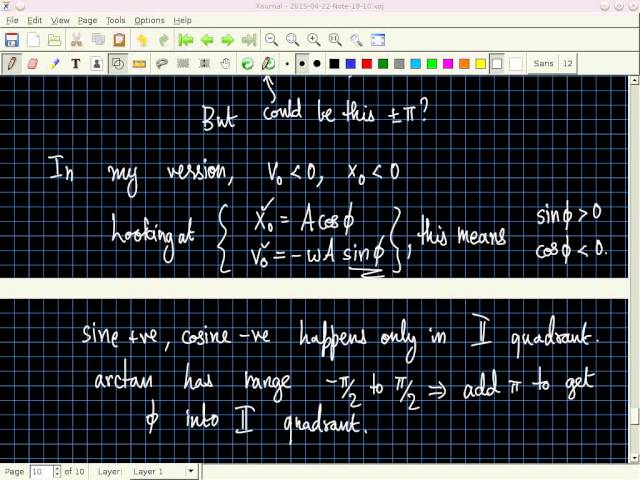 Xournal - 2015-04-22-Note-18-10.xoj
File Edit View Page Tools Options Help
Sans 12
But could be this ±π?
In my version, V₀ < 0, x₀ < 0
Looking at { x₀ = A cosϕ
V₀ = -ωA sinϕ }, this means sinϕ > 0
cosϕ < 0.
sine +ve, cosine -ve happens only in II quadrant.
arctan has range -π/2 to π/2 ⇒ add π to get
ϕ into II quadrant.
Page 10 of 10 Layer: Layer 1